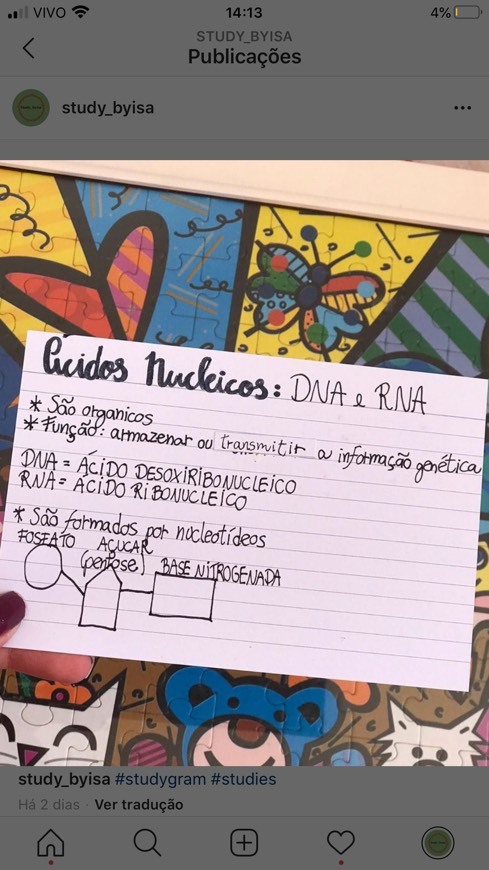 VIVO 14:13 4%
STUDY_BYISA
Publicações
study_byisa
Ácidos Nucleicos: DNA e RNA
* São organicos
* Função: armazenar ou transmitir a informação genética
DNA = ÁCIDO DESOXIRIBONUCLEICO
RNA = ÁCIDO RIBONUCLEICO
* São formados por nucleotídeos
FOSFATO AÇUCAR BASE NITROGENADA
(pentose)
study_byisa #studygram #studies
Há 2 dias · Ver tradução